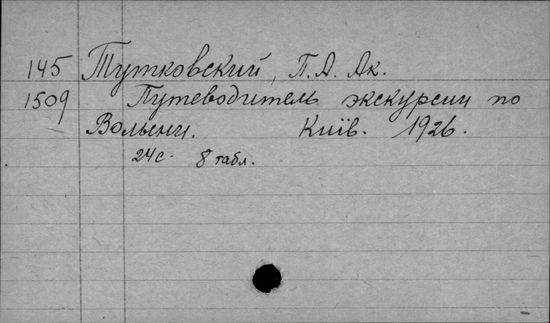 145 Тутковский, П. А. Ак.
1509 Путеводитель экскурсии по
Волыни. Київ. 1926.
24 с. 8 табл.